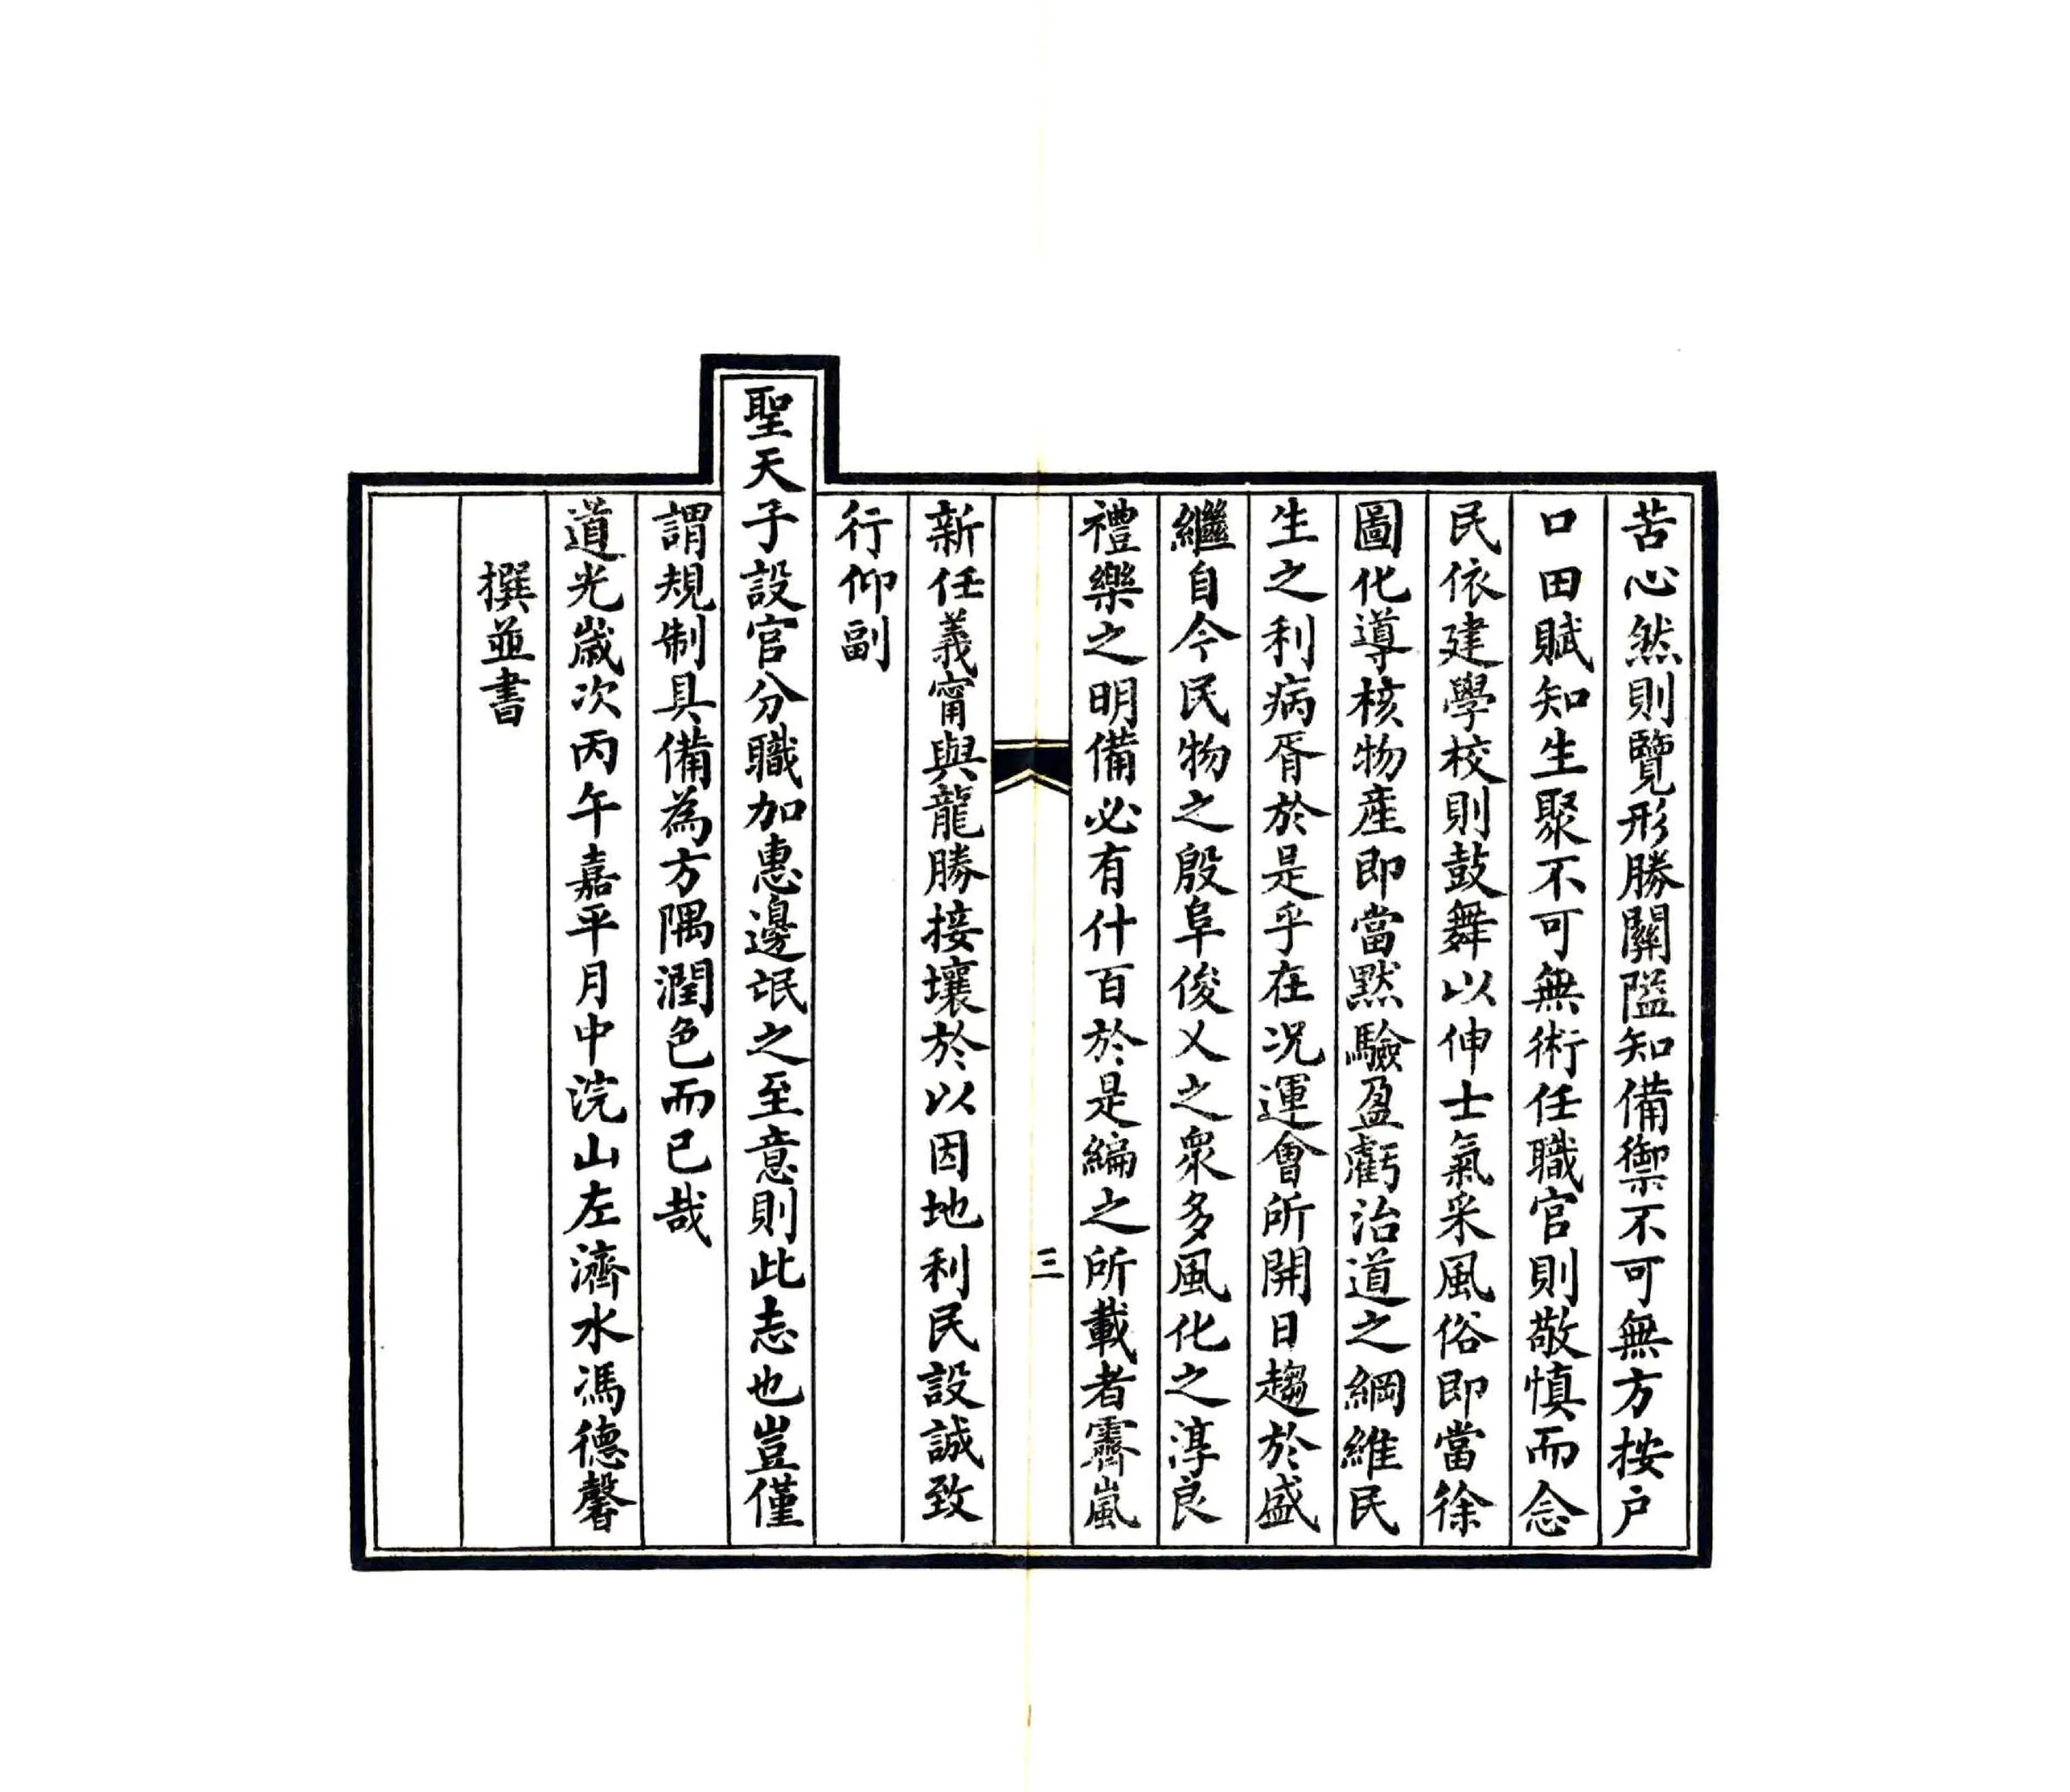 苦心然則覽形勝關隘知備禦不可無方按户
口田賦知生聚不可無術任職官則敬慎而念
民依建學校則鼓舞以伸士氣采風俗即當徐
圖化導核物產即當默驗盈虧治道之綱維民
生之利病胥於是乎在况運會所開日趨於盛
繼自今民物之殷阜俊乂之衆多風化之淳良
禮樂之明備必有什百於是編之所載者霽嵐
三
新任義甯與龍勝接壤於以因地利民設誠致
行仰副
聖天子設官分職加惠邊氓之至意則此志也豈僅
謂規制具備為方隅潤色而已哉
道光歲次丙午嘉平月中浣山左濟水馮德馨
撰並書